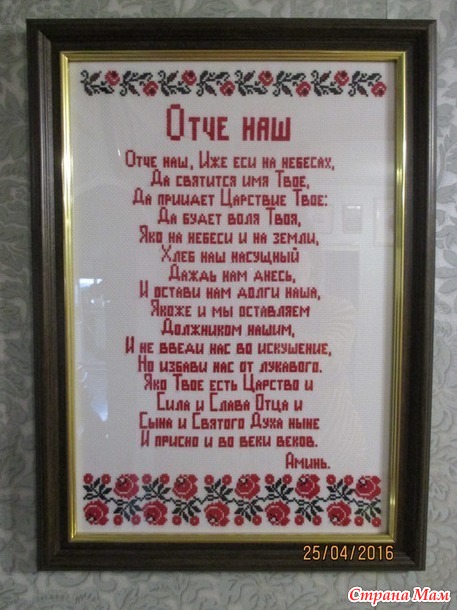 Отче наш
Отче наш, Иже еси на небесах,
Да святится имя Твое,
Да приидет Царствие Твое:
Да будет воля Твоя,
Яко на небеси и на земли,
Хлеб наш насущный
Даждь нам днесь,
И остави нам долги наша,
Якоже и мы оставляем
Должником нашим,
И не введи нас во искушение,
Но избави нас от лукавого.
Яко Твое есть Царство и
Сила и Слава Отца и
Сына и Святого Духа ныне
И присно и во веки веков.
Аминь.
25/04/2016
Страна Мам